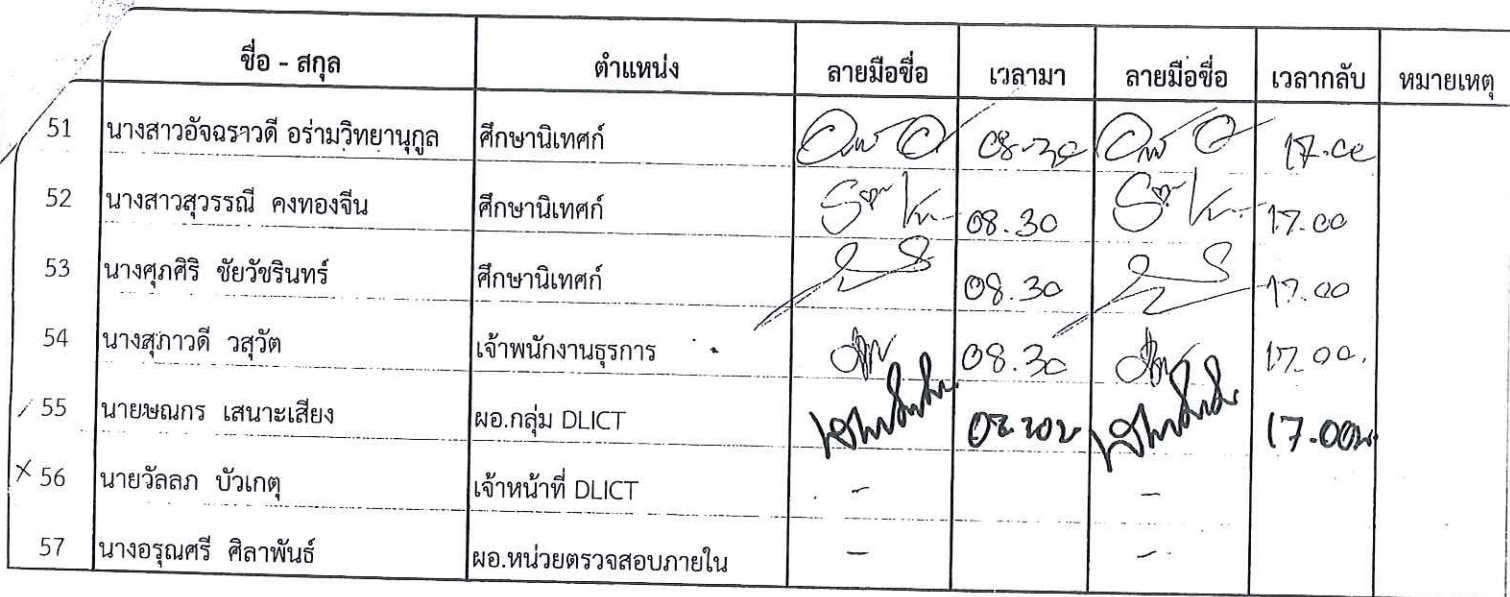 ชื่อ - สกุล ตำแหน่ง ลายมือชื่อ เวลามา ลายมือชื่อ เวลากลับ หมายเหตุ
51 นางสาวอัจฉราวดี อร่ามวิทยานุกูล ศึกษานิเทศก์ 08.30 17.00
52 นางสาวสุวรรณี คงทองจีน ศึกษานิเทศก์ 08.30 17.00
53 นางศุภศิริ ชัยวัชรินทร์ ศึกษานิเทศก์ 08.30 17.00
54 นางสุภาวดี วสุวัต เจ้าพนักงานธุรการ 08.30 17.00.
55 นายษณกร เสนาะเสียง ผอ.กลุ่ม DLICT 17.00น
× 56 นายวัลลภ บัวเกตุ เจ้าหน้าที่ DLICT - -
57 นางอรุณศรี ศิลาพันธ์ ผอ.หน่วยตรวจสอบภายใน - -